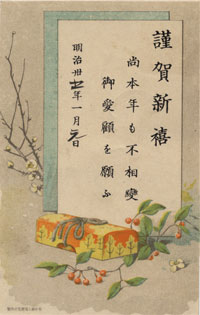 謹賀新禧
尚本年も不相變
御愛顧を願ふ
明治卅年一月元日